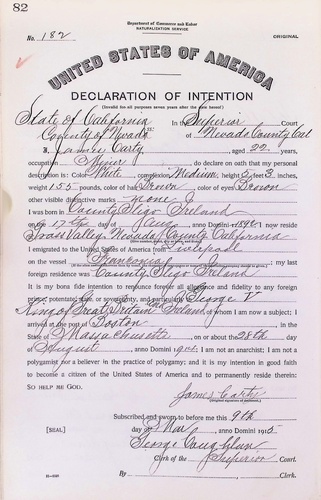 82
Department of Commerce and Labor
NATURALIZATION SERVICE
No. 182
ORIGINAL
UNITED STATES OF AMERICA
DECLARATION OF INTENTION
(Invalid for all purposes seven years after the date hereof)
State of California In the Superior Court
County of Nevada ss: of Nevada County Cal
I, James Carty, aged 22 years,
occupation Miner, do declare on oath my personal
description is: Color White, complexion Medium, height 5 feet 3 inches,
weight 155 pounds, color of hair Brown, color of eyes Brown
other visible distinctive marks none
I was born in County Sligo Ireland
on the 12 day of Aug, anno Domini 1892; I now reside
at Grass Valley, Nevada County California
I emigrated to the United States of America from Liverpool
on the vessel Franconia; my last
foreign residence was County Sligo Ireland
It is my bona fide intention to renounce forever all allegiance and fidelity to any foreign
prince, potentate, state, or sovereignty, and particularly to George V
King of Great Britain and Ireland, of whom I am now a subject; I
arrived at the port of Boston, in the
State of Massachusetts, on or about the 28th day
of August, anno Domini; I am not an anarchist; I am not a
polygamist nor a believer in the practice of polygamy; and it is my intention in good faith
to become a citizen of the United States of America and to permanently reside therein:
SO HELP ME GOD.
James Carty
(Original signature of declarant.)
Subscribed and sworn to before me this 9th
[SEAL] day of Mar, anno Domini 1915
George Coughlan
Clerk of the Superior Court.
By, Clerk.